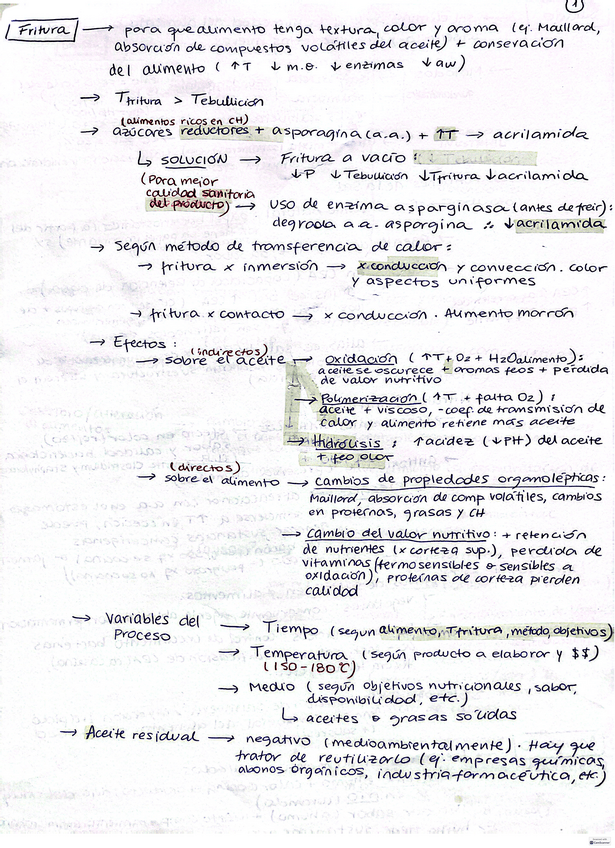 1
Fritura → para que alimento tenga textura, color y aroma (ej. Maillard,
absorción de compuestos volátiles del aceite) + conservación
del alimento (↑T ↓m.o. ↓enzimas ↓aw)
→ Tfritura > Tebullición
(alimentos ricos en CH)
→ azúcares reductores + asparagina (a.a.) + ↑T → acrilamida
↳ SOLUCIÓN → Fritura a vacío :
(Para mejor calidad sanitaria del producto)
↓P ↓Tebullición ↓Tfritura ↓acrilamida
→ Uso de enzima asparginasa (antes de freir):
degrada a.a. aspargina ∴ ↓acrilamida
→ Según método de transferencia de calor:
→ fritura x inmersión → x conducción y convección. color
y aspectos uniformes
→ fritura x contacto → x conducción. Aumento marrón
→ Efectos :
(indirectos)
→ sobre el aceite → oxidación (↑T + O2 + H2Oalimento):
aceite se oscurece + aromas feos + perdida
de valor nutritivo
→ Polimerización (↑T + falta O2) :
aceite + viscoso, -coef. de transmisión de
calor y alimento retiene más aceite
→ Hidrólisis : ↑acidez (↓PH) del aceite
+ feo olor
(directos)
→ sobre el alimento → cambios de propiedades organolépticas:
Maillard, absorción de comp volátiles, cambios
en proteínas, grasas y CH
→ Cambio del valor nutritivo: + retención
de nutrientes (x corteza sup.), perdida de
vitaminas (termosensibles o sensibles a
oxidación), proteínas de corteza pierden
calidad
→ Variables del Proceso → Tiempo (según alimento, Tfritura, método, objetivos)
→ Temperatura (según producto a elaborar y $$)
(150-180°C)
→ Medio (según objetivos nutricionales, sabor,
disponibilidad, etc.)
↳ aceites o grasas sólidas
→ Aceite residual → negativo (medioambientalmente). Hay que
tratar de reutilizarlo (ej. empresas químicas,
abonos orgánicos, industria farmacéutica, etc)